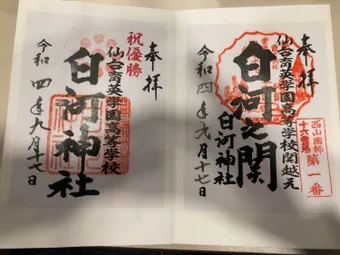 奉拝
仙台育英学園高等学校関越え
白河之関
白河神社
令和四年九月十七日
西山国師
十六霊場
第一番
奉拝
祝優勝
仙台育英学園高等学校
白河神社
令和四年九月十七日